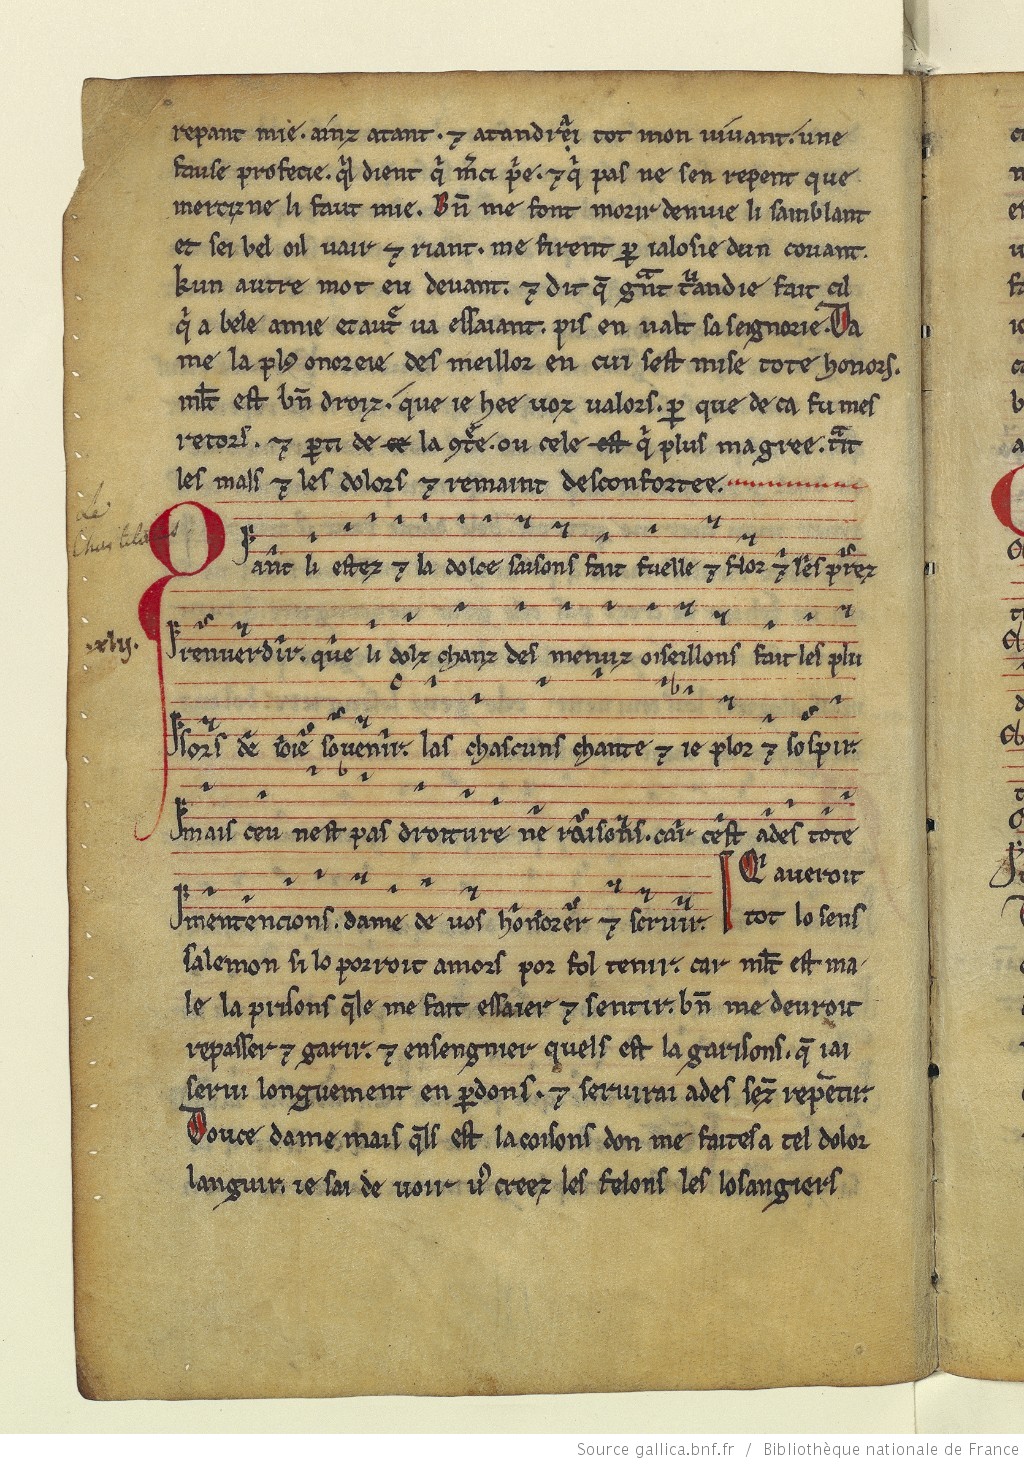 repant mie. ainz atant. ⁊ atandrai tot mon vivant. une
fause profecie. q̃l dient q̃ m̃ci p̃e. ⁊ q̃ pas ne sen repent que
merci ne li faut mie. Bñ me font morir denuie li samblant
et sei bel oil uair ⁊ riant. me firent ꝑ ialosie dun couant.
kun autre mot eu deuant. ⁊ dit q̃ fait cil
q̃ a bele amie et autͤ ua essaiant. pis en ualt sa seignorie. Da
me la plꝰ onoreie des meillor en cui sest mise tote honors.
ml̃t est bñ droiz. que ie hee uoz ualors. ꝑ que de ca fu mes
retors. ⁊ ꝑti de la ꝯtͤe. ou cele q̃ plus magree. tãt
les mals ⁊ les dolors ⁊ remaint desconfortee.
Le
Chastelains
Qant li estez ⁊ la dolce saisons fait fuelle ⁊ flor ⁊ les prez
.xlij.
renuerdir. que li dolz chanz des menuz oiseillons fait les plu
sors de ioie souenir. las chascuns chante ⁊ ie plor ⁊ sospir.
mais ceu nest pas droiture ne raisons. car cest ades tote
mentencions. dame de uos honorer ⁊ seruir.
Qi aueroit
tot lo sens
salemon si lo porroit amors por fol tenir. car ml̃t est ma
le la prisons q̃le me fait essaier ⁊ sentir. bñ me deuroit
repasser ⁊ garir. ⁊ ensengnier quels est la garisons. q̃ iai
serui longuement en ꝑdons. ⁊ seruirai ades sez̃ repẽtir.
Douce dame mais q̃ls est la coisons don me faites a tel dolor
languir. ie sai de uoir creez les felons les losangiers
Source gallica.bnf.fr / Bibliothèque nationale de France